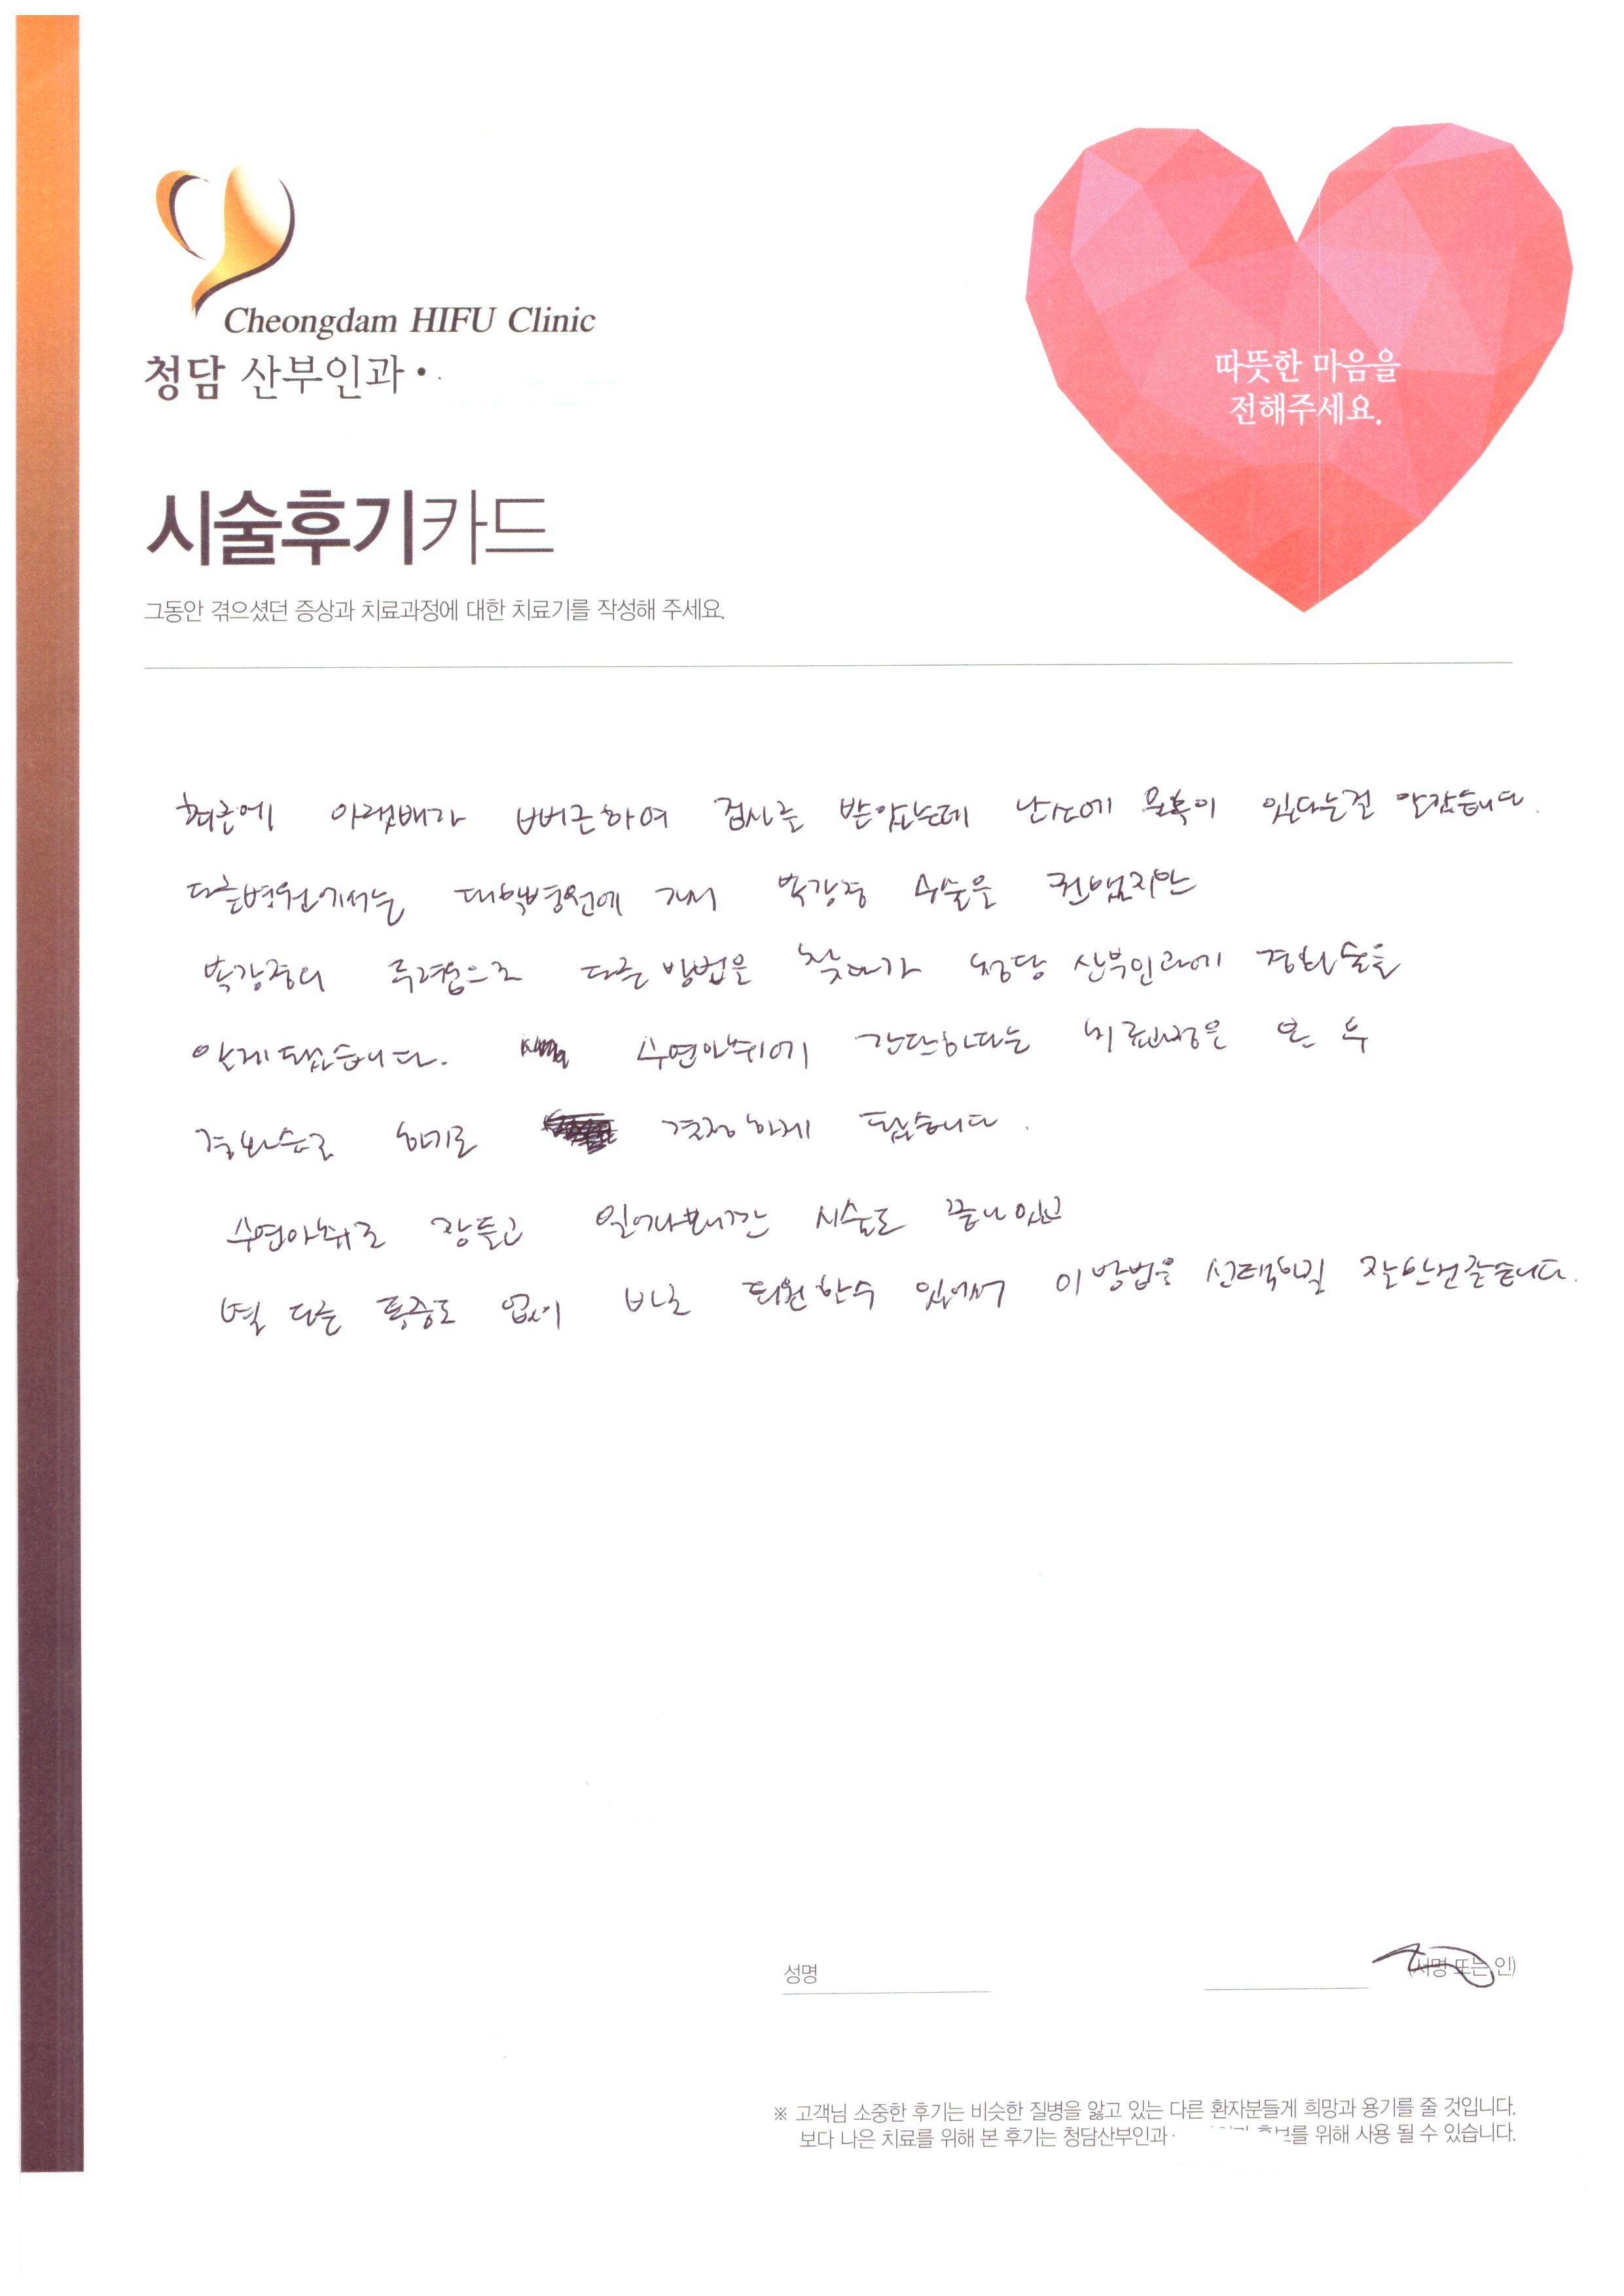 Cheongdam HIFU Clinic
청담 산부인과 •
따뜻한 마음을
전해주세요.
시술후기카드
그동안 겪으셨던 증상과 치료과정에 대한 치료기를 작성해 주세요.
최근에 아랫배가 뻐근하여 검사를 받았는데 난소에 물혹이 있다는걸 알았습니다.
다른병원에서는 대학병원에 가서 복강경 수술을 권했지만
복강경의 두려움으로 다른 방법을 찾다가 청담 산부인과에 경화술을
알게 됐습니다. 수면마취에 간단하다는 치료과정을 본 후
경화술로 하기로 결정하게 됐습니다.
수면마취로 잠들고 일어나보니깐 시술도 끝나있고
별 다른 통증도 없이 바로 퇴원할수 있어서 이 방법을 선택하길 잘한건같습니다.
성명
(서명 또는 인)
※ 고객님 소중한 후기는 비슷한 질병을 앓고 있는 다른 환자분들게 희망과 용기를 줄 것입니다.
보다 나은 치료를 위해 본 후기는 청담산부인과 를 위해 사용 될 수 있습니다.